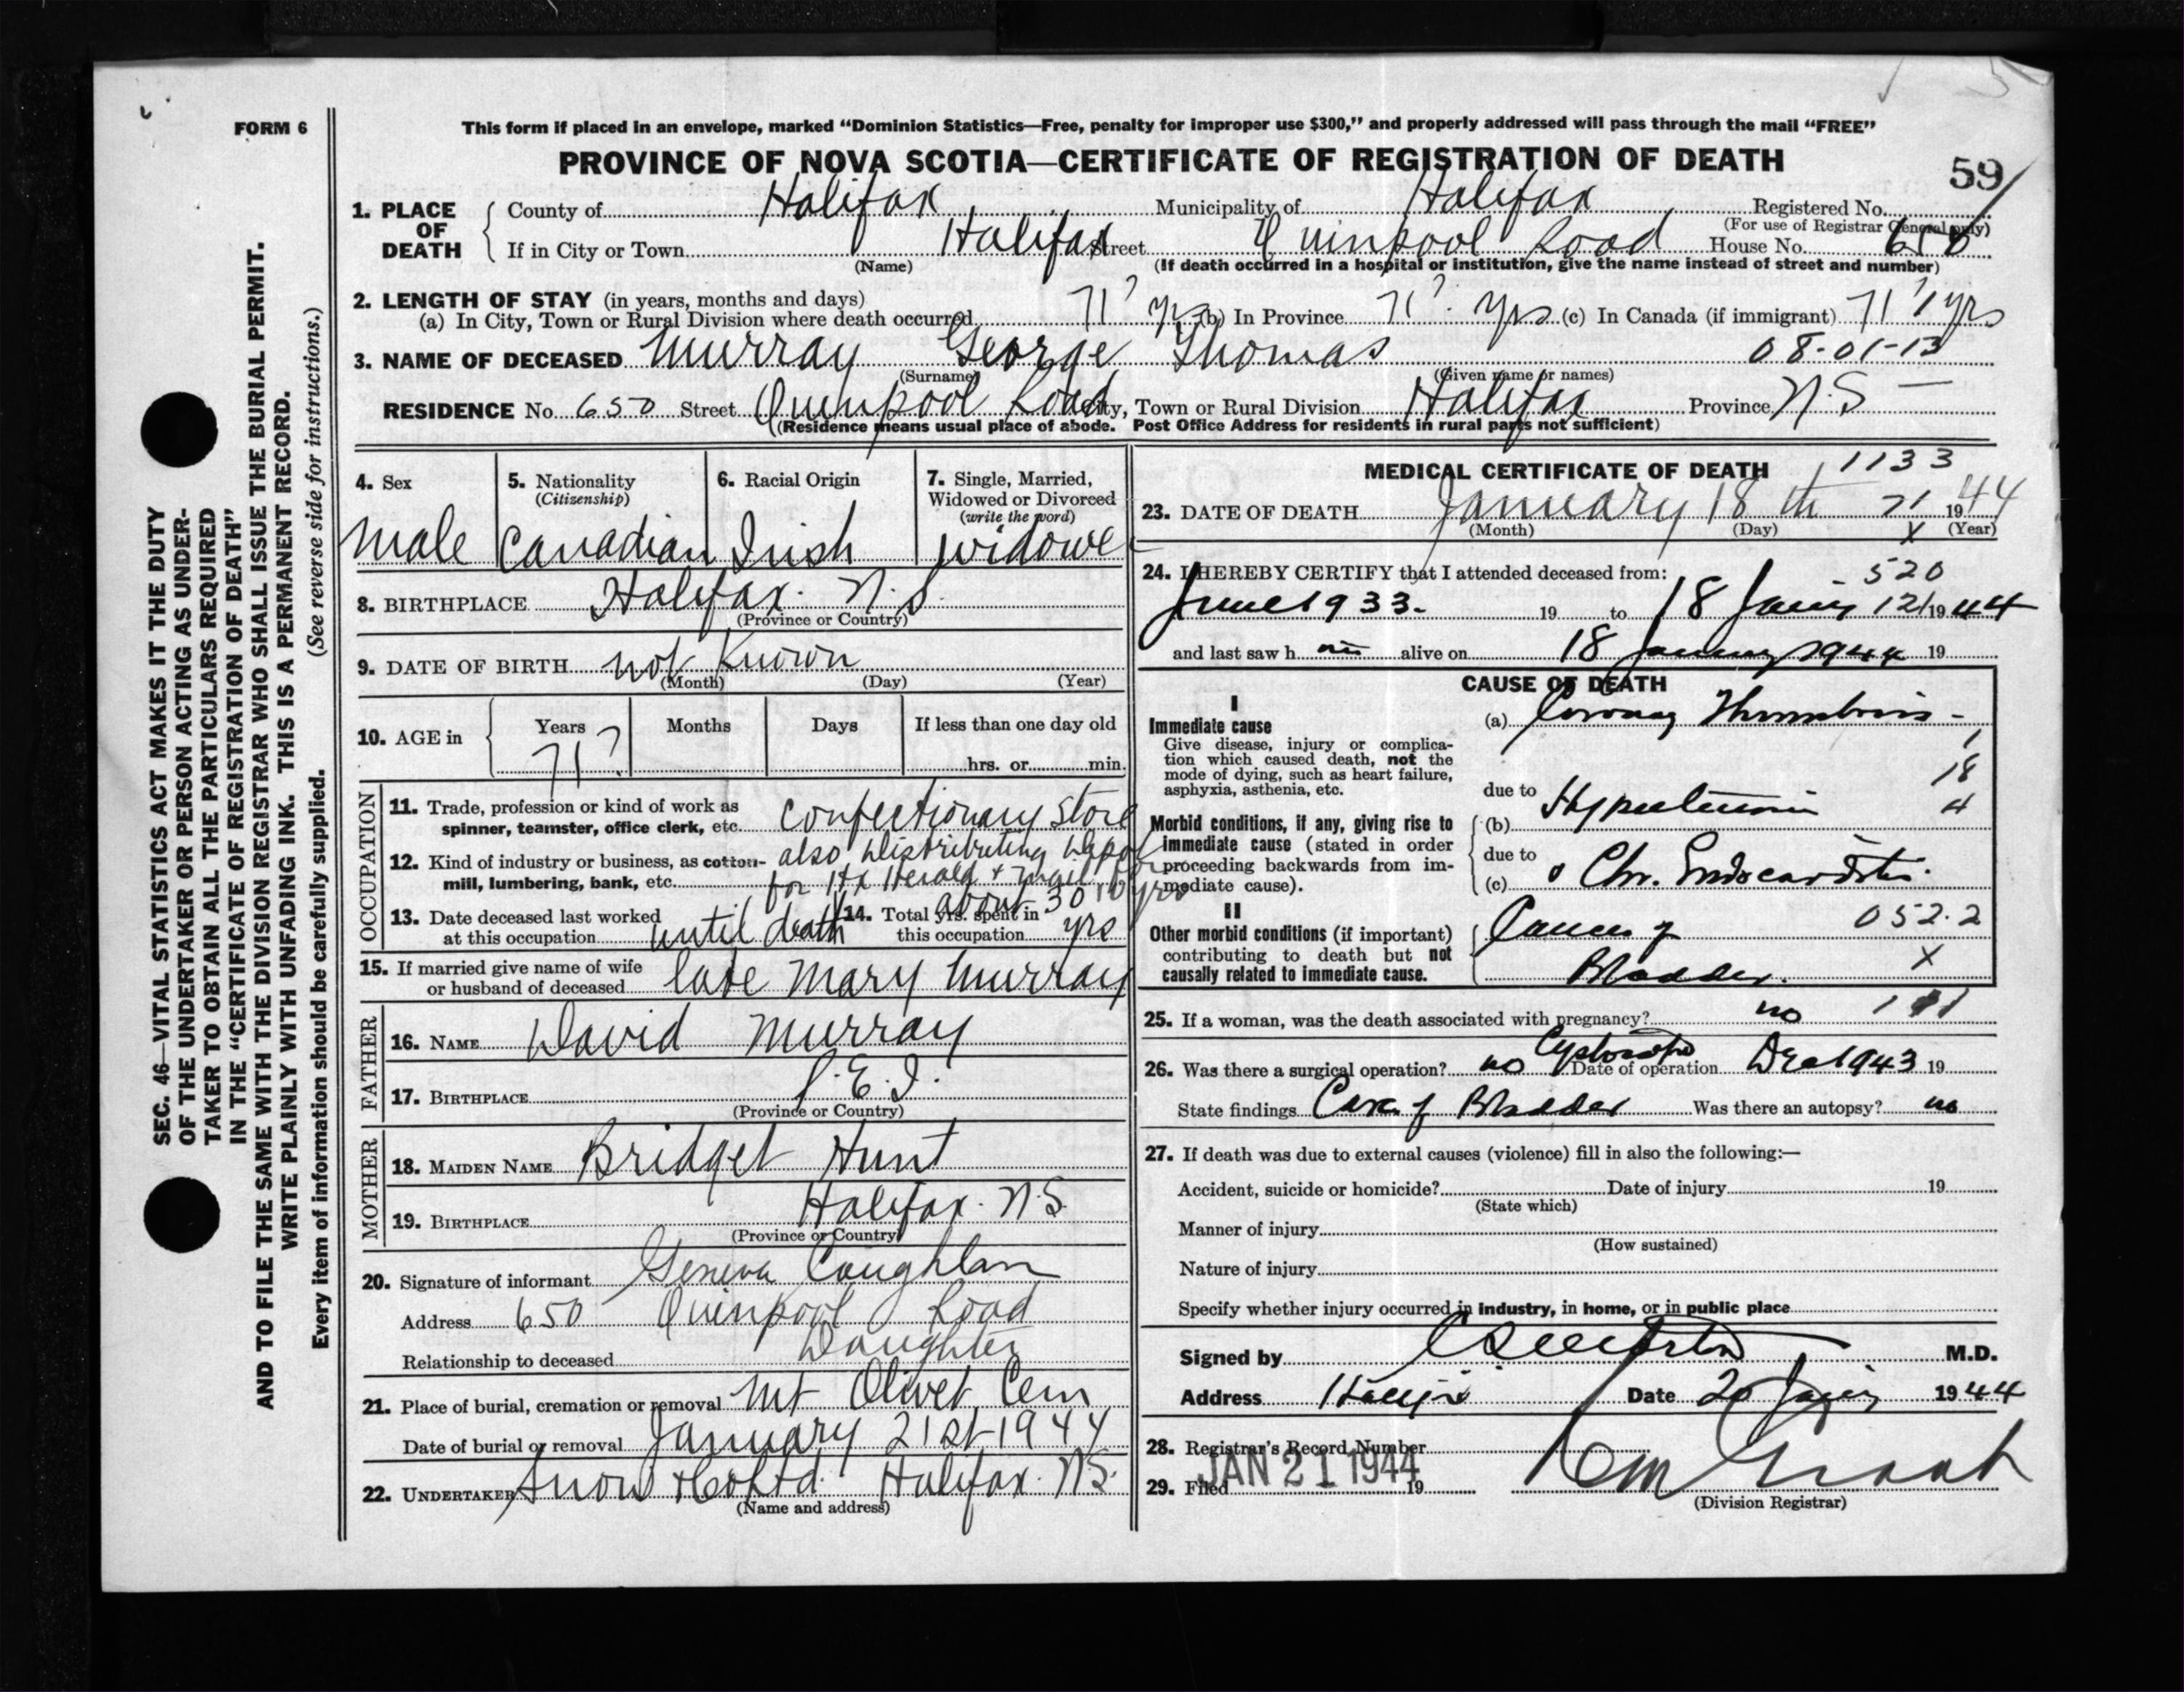 FORM 6
This form if placed in an envelope, marked “Dominion Statistics—Free, penalty for improper use $300,” and properly addressed will pass through the mail “FREE”
PROVINCE OF NOVA SCOTIA—CERTIFICATE OF REGISTRATION OF DEATH
59
1. PLACE OF DEATH County of Halifax Municipality of Halifax Registered No.
(For use of Registrar General only)
If in City or Town Halifax Street Quinpool Road House No. 650
(Name) (If death occurred in a hospital or institution, give the name instead of street and number)
2. LENGTH OF STAY (in years, months and days)
(a) In City, Town or Rural Division where death occurred 71? yrs (b) In Province 71? yrs (c) In Canada (if immigrant) 71? yrs
3. NAME OF DECEASED Murray George Thomas 08-01-13
(Surname) (Given name or names)
RESIDENCE No. 650 Street Quinpool Road City, Town or Rural Division Halifax Province N.S —
(Residence means usual place of abode. Post Office Address for residents in rural parts not sufficient)
4. Sex 5. Nationality (Citizenship) 6. Racial Origin 7. Single, Married, Widowed or Divorced (write the word)
Male Canadian Irish widower
8. BIRTHPLACE Halifax. N.S
(Province or Country)
9. DATE OF BIRTH not Known
(Month) (Day) (Year)
10. AGE in Years Months Days If less than one day old
71? hrs. or min.
OCCUPATION
11. Trade, profession or kind of work as spinner, teamster, office clerk, etc. Confectionary Store
12. Kind of industry or business, as cotton-mill, lumbering, bank, etc. also Distributing Depot
for Hx Herald + Mail for
about 30 yrs
13. Date deceased last worked at this occupation until death 14. Total yrs. spent in this occupation yrs
15. If married give name of wife or husband of deceased late Mary Murray
FATHER
16. NAME David Murray
17. BIRTHPLACE P.E.I.
(Province or Country)
MOTHER
18. MAIDEN NAME Bridget Hunt
19. BIRTHPLACE Halifax. N.S.
(Province or Country)
20. Signature of informant Geneva Coughlan
Address 650 Quinpool Road
Relationship to deceased Daughter
21. Place of burial, cremation or removal Mt Olivet Cem
Date of burial or removal January 21st 1944
22. UNDERTAKER Snow & Co Ltd. Halifax. N.S.
(Name and address)
MEDICAL CERTIFICATE OF DEATH 1133
23. DATE OF DEATH January 18 th 71 1944
(Month) (Day) x (Year)
24. I HEREBY CERTIFY that I attended deceased from: - 520
June 1933. 19 to 18 Jany 12/ 1944
and last saw h im alive on 18 January 1944 19
CAUSE OF DEATH
I
Immediate cause
Give disease, injury or complication which caused death, not the mode of dying, such as heart failure, asphyxia, asthenia, etc.
(a) Coronary Thrombosis -
1
18
4
due to
Morbid conditions, if any, giving rise to immediate cause (stated in order proceeding backwards from immediate cause).
(b) Hypertension
due to
(c) Chr. Endocarditis.
II
Other morbid conditions (if important) contributing to death but not causally related to immediate cause.
Cancer of 052.2
Bladder. X
25. If a woman, was the death associated with pregnancy? no
26. Was there a surgical operation? no Date of operation Dec 1943 19
State findings Bladder Was there an autopsy? no
27. If death was due to external causes (violence) fill in also the following:—
Accident, suicide or homicide? Date of injury 19
(State which)
Manner of injury
(How sustained)
Nature of injury
Specify whether injury occurred in industry, in home, or in public place
Signed by M.D.
Address Halifax Date 20 Jany 1944
28. Registrar's Record Number
29. Filed JAN 21 1944 19
(Division Registrar)
SEC. 46—VITAL STATISTICS ACT MAKES IT THE DUTY
OF THE UNDERTAKER OR PERSON ACTING AS UNDER-
TAKER TO OBTAIN ALL THE PARTICULARS REQUIRED
IN THE “CERTIFICATE OF REGISTRATION OF DEATH”
AND TO FILE THE SAME WITH THE DIVISION REGISTRAR WHO SHALL ISSUE THE BURIAL PERMIT.
WRITE PLAINLY WITH UNFADING INK. THIS IS A PERMANENT RECORD.
Every item of information should be carefully supplied. (See reverse side for instructions.)